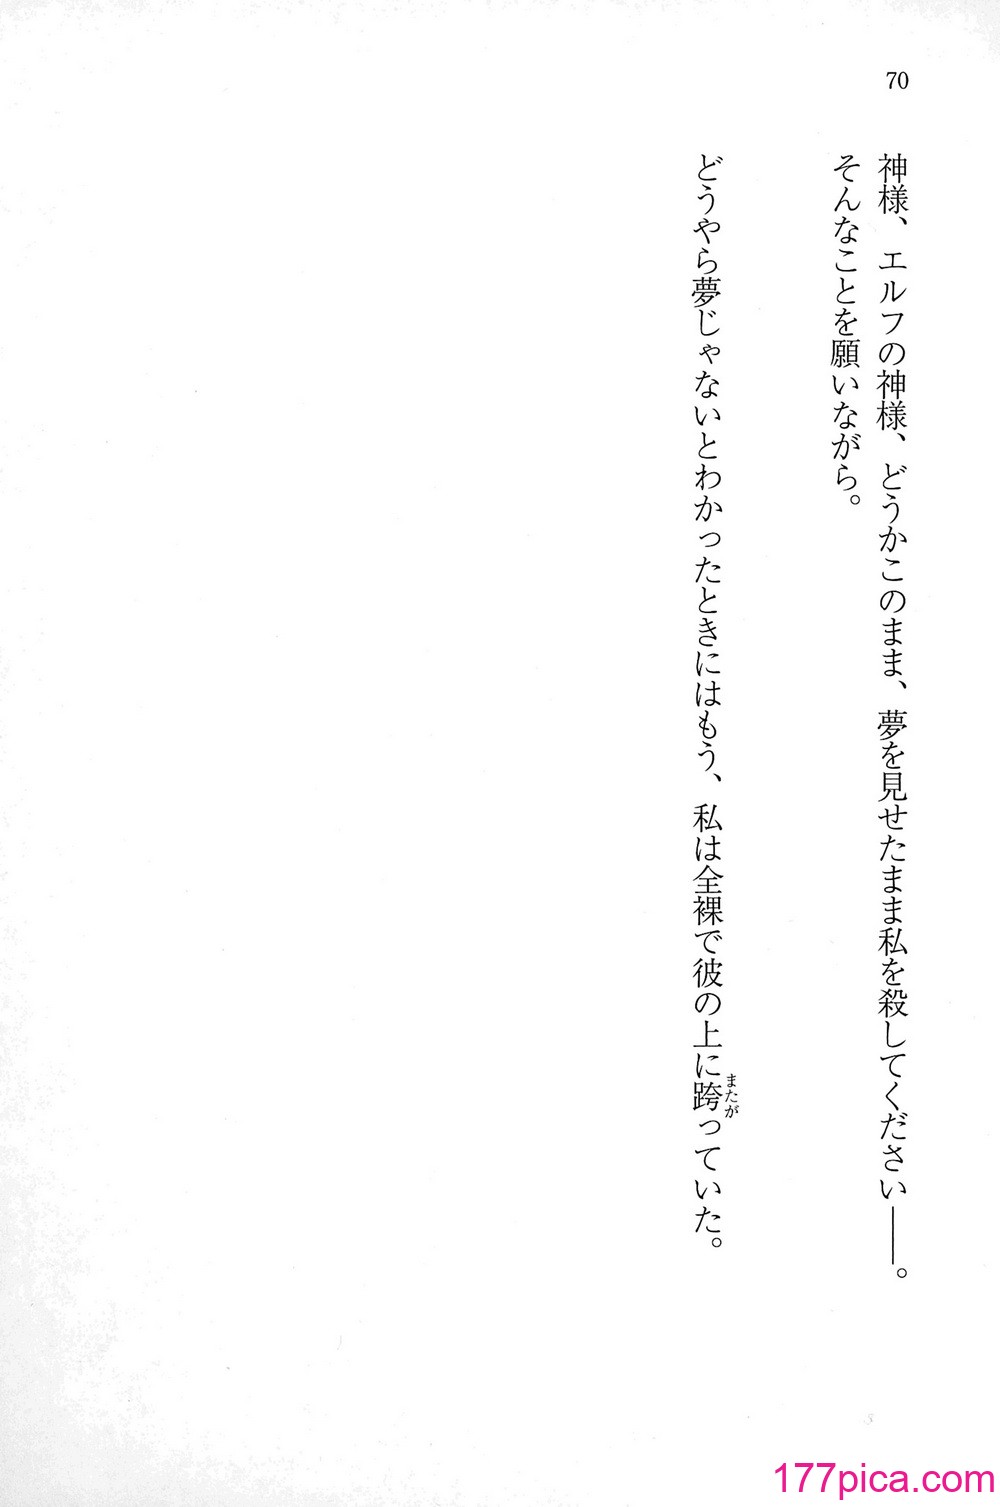 70
神様、エルフの神様、どうかこのまま、夢を見せたまま私を殺してください――。
そんなことを願いながら。
どうやら夢じゃないとわかったときにはもう、私は全裸で彼の上に跨っていた。
またが
177pica.com